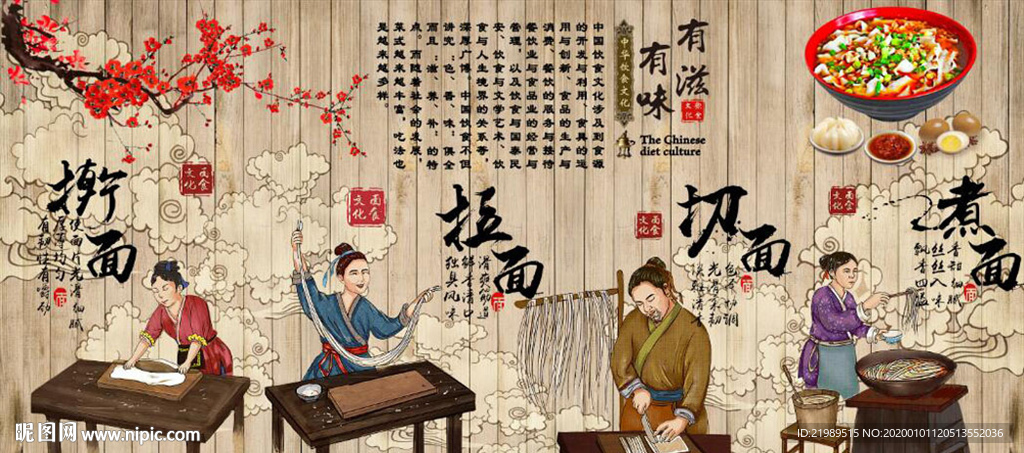 有滋
有味
中华饮食文化
饮食
文化
The Chinese
diet culture
中国饮食文化涉及到食源
的开发与利用、食具的运
用与创新、食品的生产与
消费、餐饮的服务与接待
餐饮业与食品业的经营与
管理，以及饮食与国泰民
安、饮食与文学艺术、饮
食与人生境界的关系等，
深厚广博。中国饮食不但
讲究：色、香、味：俱全
而且：滋、养、补：的特
点。而随着社会的发展，
菜式越来越丰富，吃法也
是越来越多样。
擀面
面食
文化
使面片光滑细腻
厚薄均匀
有韧性有嚼劲
面食
文化
拉面
滑爽筋道
鲜香清口
独具风味
面食
文化
切面
光滑柔韧
面食
文化
煮面
香韧细腻
丝丝入味
飘香四溢
昵图网 www.nipic.com
ID:21989515 NO:20200101120513552036